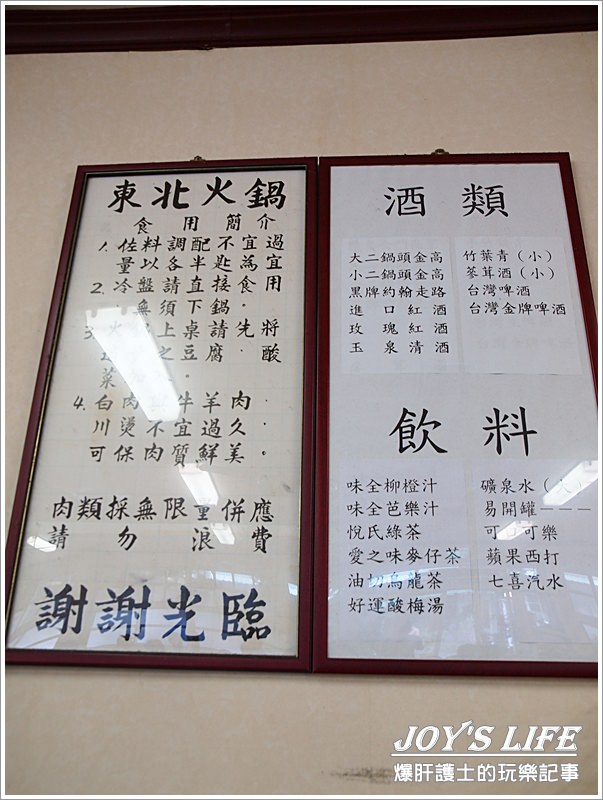 東北火鍋
食用簡介
1. 佐料調配不宜過
量以各半匙為宜
2. 冷盤請直接食用
無須下鍋.
3. 上桌請先將
之豆腐. 酸
菜
4. 白肉 牛羊肉
川燙不宜過久
可保肉質鮮美.
肉類採無限量併應
請勿浪費
謝謝光臨
酒類
大二鍋頭金高
小二鍋頭金高
黑牌約翰走路
進口紅酒
玫瑰紅酒
玉泉清酒
竹葉青（小）
蔘茸酒（小）
台灣啤酒
台灣金牌啤酒
飲料
味全柳橙汁
味全芭樂汁
悅氏綠茶
愛之味麥仔茶
油切烏龍茶
好運酸梅湯
礦泉水（
易開罐－－－
可口可樂
蘋果西打
七喜汽水
JOY'S LIFE
爆肝護士的玩樂記事